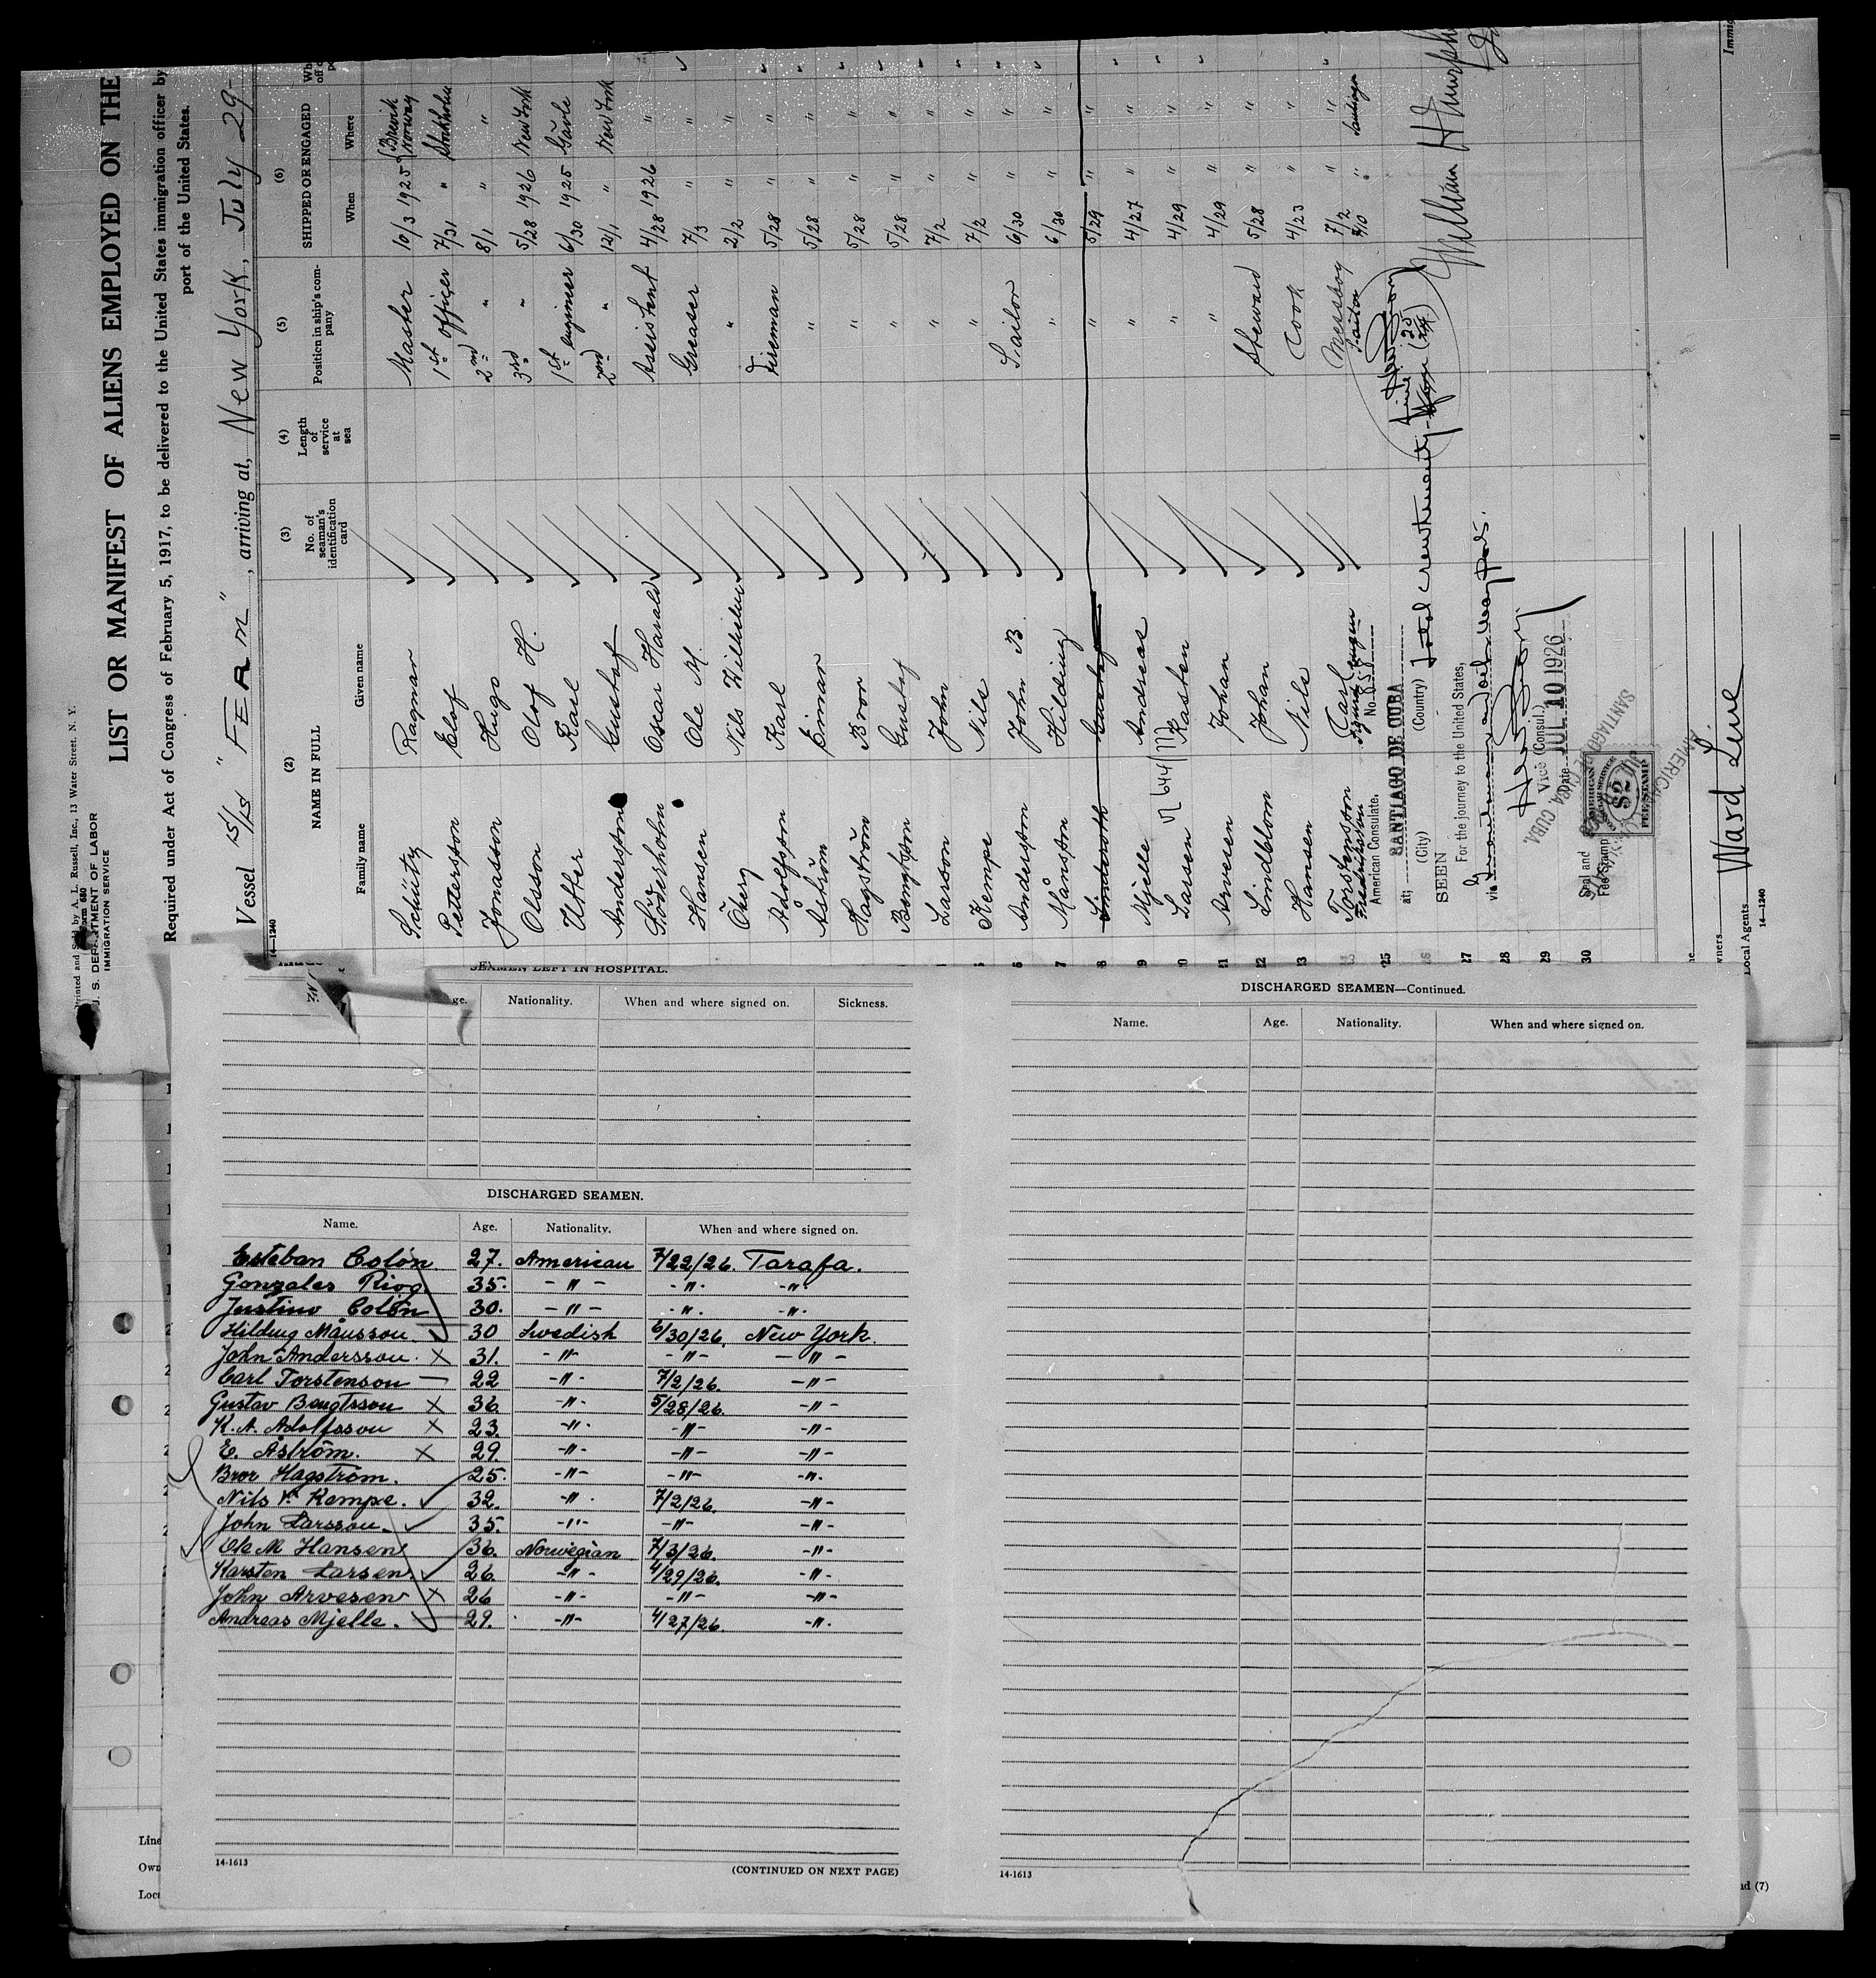 Printed and Sold by A. L. Russell, Inc., 13 Water Street, N. Y.
Form 680
U. S. DEPARTMENT OF LABOR
IMMIGRATION SERVICE
LIST OR MANIFEST OF ALIENS EMPLOYED ON THE
Required under Act of Congress of February 5, 1917, to be delivered to the United States immigration officer by
port of the United States.
Vessel S/S "FERM", arriving at, New York, July 29-
14—1240
(2) (3) (4) (5) (6)
NAME IN FULL No. of seaman's identification card Length of service at sea Position in ship's company SHIPPED OR ENGAGED
Family name Given name When Where
Schütz Ragnar Master 10/3 1925 Brevik Norway
Petersson Elof 1st officer 7/31 " Stockholm
Jonasson Hugo 2nd " 8/1 " "
Olsson Olof H. 3rd " 5/28 1926 New York
Utter Karl 1st engineer 6/30 1925 Gävle
Andersson Gustaf 2nd " 12/1 " New York
Söderholm Oscar Harald Assistent 4/28 1926 "
Hansen Ole M. Greaser 7/3 " "
Öberg Nils Wilhelm " 2/2 " "
Adolfsson Karl Fireman 5/28 " "
Åström Einnar " 5/28 " "
Hagström Bror " 5/28 " "
Bengtson Gustaf " 5/28 " "
Larson John " 7/2 " "
Kempe Nils " 7/2 " "
6 Anderston John B. Sailor 6/30 " "
7 Månston Hilding " 6/30 " "
8 Gustaf " 5/29 " "
9 Mjelle Andreas " 4/27 " "
Larsen Kasten " 4/29 " "
21 Arvesen Johan " 4/29 " "
22 Lindblom Johan Steward 5/28 " "
23 Hansen Nils Cook 4/23 " "
Torstenston Carl Messboy 7/2 " "
Fredriksson Sigurd Eugen Sailor 7/10 " Santiago
25
26
27
28
29
30
American Consulate, No. 858
at; SANTIAGO DE CUBA
(City) (Country)
Total crew twenty-five (25)
SEEN
For the journey to the United States,
via
Vice (Consul.)
Date JUL 10 1926
Seal and
Fee Stamp
AMERICAN
$2
FEE STAMP
SANTIAGO DE CUBA, CUBA
AMERICAN
William H Murphy
Local Agents Ward Line
14—1240
SEAMEN LEFT IN HOSPITAL.
Nationality. When and where signed on. Sickness.
DISCHARGED SEAMEN.
Name. Age. Nationality. When and where signed on.
Esteban Colón. 27. American 7/22/26. Tarafa.
Gonzales Riog. 35. -"- -"- -"-
Justino Colón 30. -"- -"- -"-
Hilding Månsson. 30 Swedish 6/30/26, New York.
John Andersson. X 31. -"- -"- -"-
Carl Torstenson — 22 -"- 7/2/26. -"-
Gustav Bengtsson X 36. -"- 5/28/26. -"-
K. A. Adolfsson X 23. -"- -"- -"-
E. Åström. X 29. -"- -"- -"-
Bror Hagström. 25. -"- -"- -"-
Nils V. Kempe. 32. -"- 7/2/26. -"-
John Larsson. 35. -"- -"- -"-
Ole M Hansen 36. Norwegian 7/3/26. -"-
Karsten Larsen 26. -"- 4/29/26. -"-
John Arvesen X 26 -"- -"- -"-
Andreas Mjelle. 29. -"- 4/27/26. -"-
14-1613
(CONTINUED ON NEXT PAGE)
DISCHARGED SEAMEN—Continued.
Name. Age. Nationality. When and where signed on.
14-1613
Line
Own
Loca
nd (7)